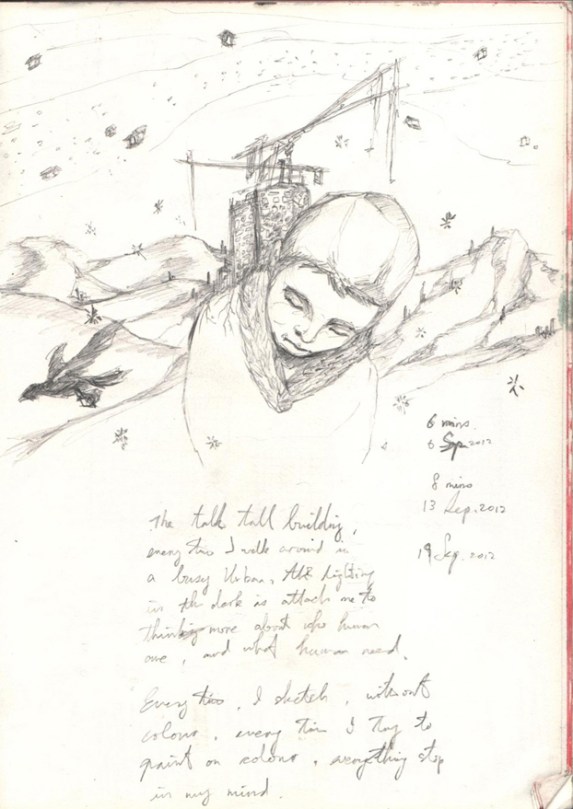 6 mins.
6 Sep 2012
8 mins
13 Sep. 2012
19 Sep. 2012
The talk tall building,
every I walk around in
a busy Urban, lighting
in the dark is attach me to
thinking more about who human
are, and what human need.
Every, I sketch, without
colour, every I try to
paint on colour, everything stop
in my mind.